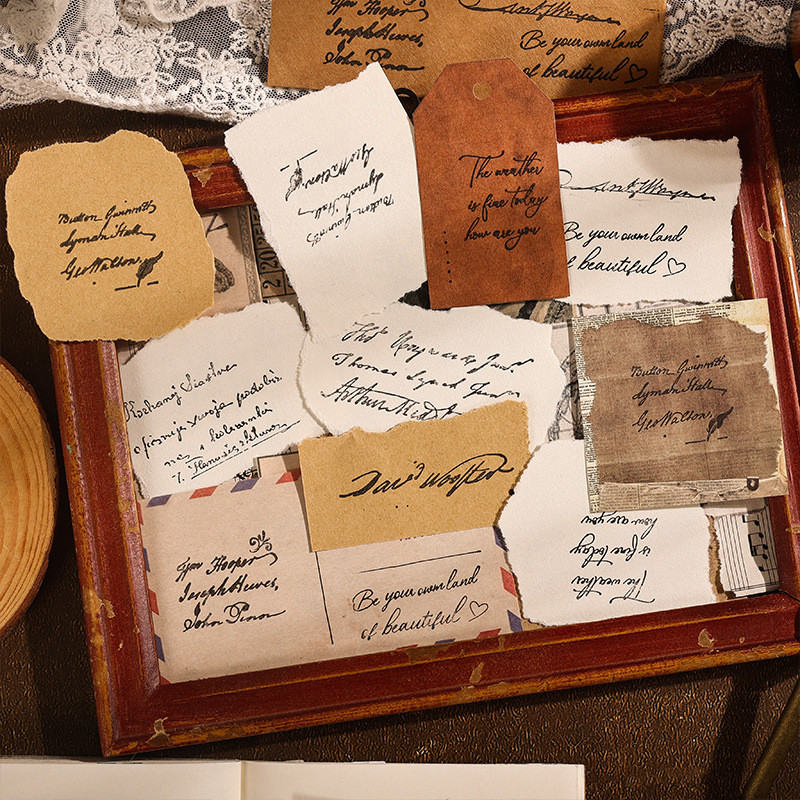 Wm Hooper
Joseph Hewes,
John Penn
Ant. Wayne
Be your own land
of beautiful ♡
Button Gwinnett
Lyman Hall
Geo Walton.
Button Gwinnett
Lyman Hall
Geo Walton.
The weather
is fine today
how are you
Ant. Wayne
Be your own land
of beautiful ♡
Thos Heyward Junr.
Thomas Lynch Junr.
Arthur Middl
Kochanej
i
Button Gwinnett
Lyman Hall
Geo Walton.
David Wooster
Wm Hooper
Joseph Hewes,
John Penn
Be your own land
of beautiful ♡
The weather
is fine today
how are you